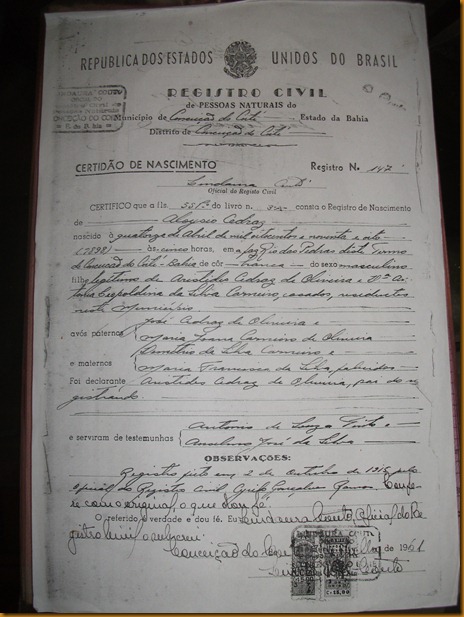 REPÚBLICA DOS ESTADOS UNIDOS DO BRASIL
REGISTRO CIVIL
de PESSOAS NATURAIS do
Município de Conceição do Coité Estado da Bahia
Distrito de Conceição do Coité
CERTIDÃO DE NASCIMENTO Registro N. 147
Couto
Oficial do Registo Civil
CERTIFICO que a fls. do livro n. consta o Registro de Nascimento
de Aloysio Cedraz
nascido à quatorze de Abril de mil oitocentos e noventa e oito
(1898) às cinco horas, em a faz Rio das Pedras deste Termo
de Conceição do Coité - Bahia de côr branca do sexo masculino
filho legítimo de Aristides Cedraz de Oliveira e
Leopoldina da Silva Carneiro, casados, residentes
neste Município
avós paternos José Cedraz de Oliveira e
Maria Joana Carneiro de Oliveira
e maternos Demetrio da Silva Carneiro e
Maria Francisca da Silva, falecidos
Foi declarante Aristides Cedraz de Oliveira, pae do re
gistrando.
e serviram de testemunhas Antonio de Souza Pinto e
Anselmo José da Silva
OBSERVAÇÕES:
Registro feito em 2 de Outubro de 1916, pelo
Oficial do Registro Civil Gonçalves Ramos. Confe
re com o original, o que dou fé.
O referido é verdade e dou fé. Eu Couto, Oficial do Re
gistro Civil,
Conceição do Coité de 1961
Couto